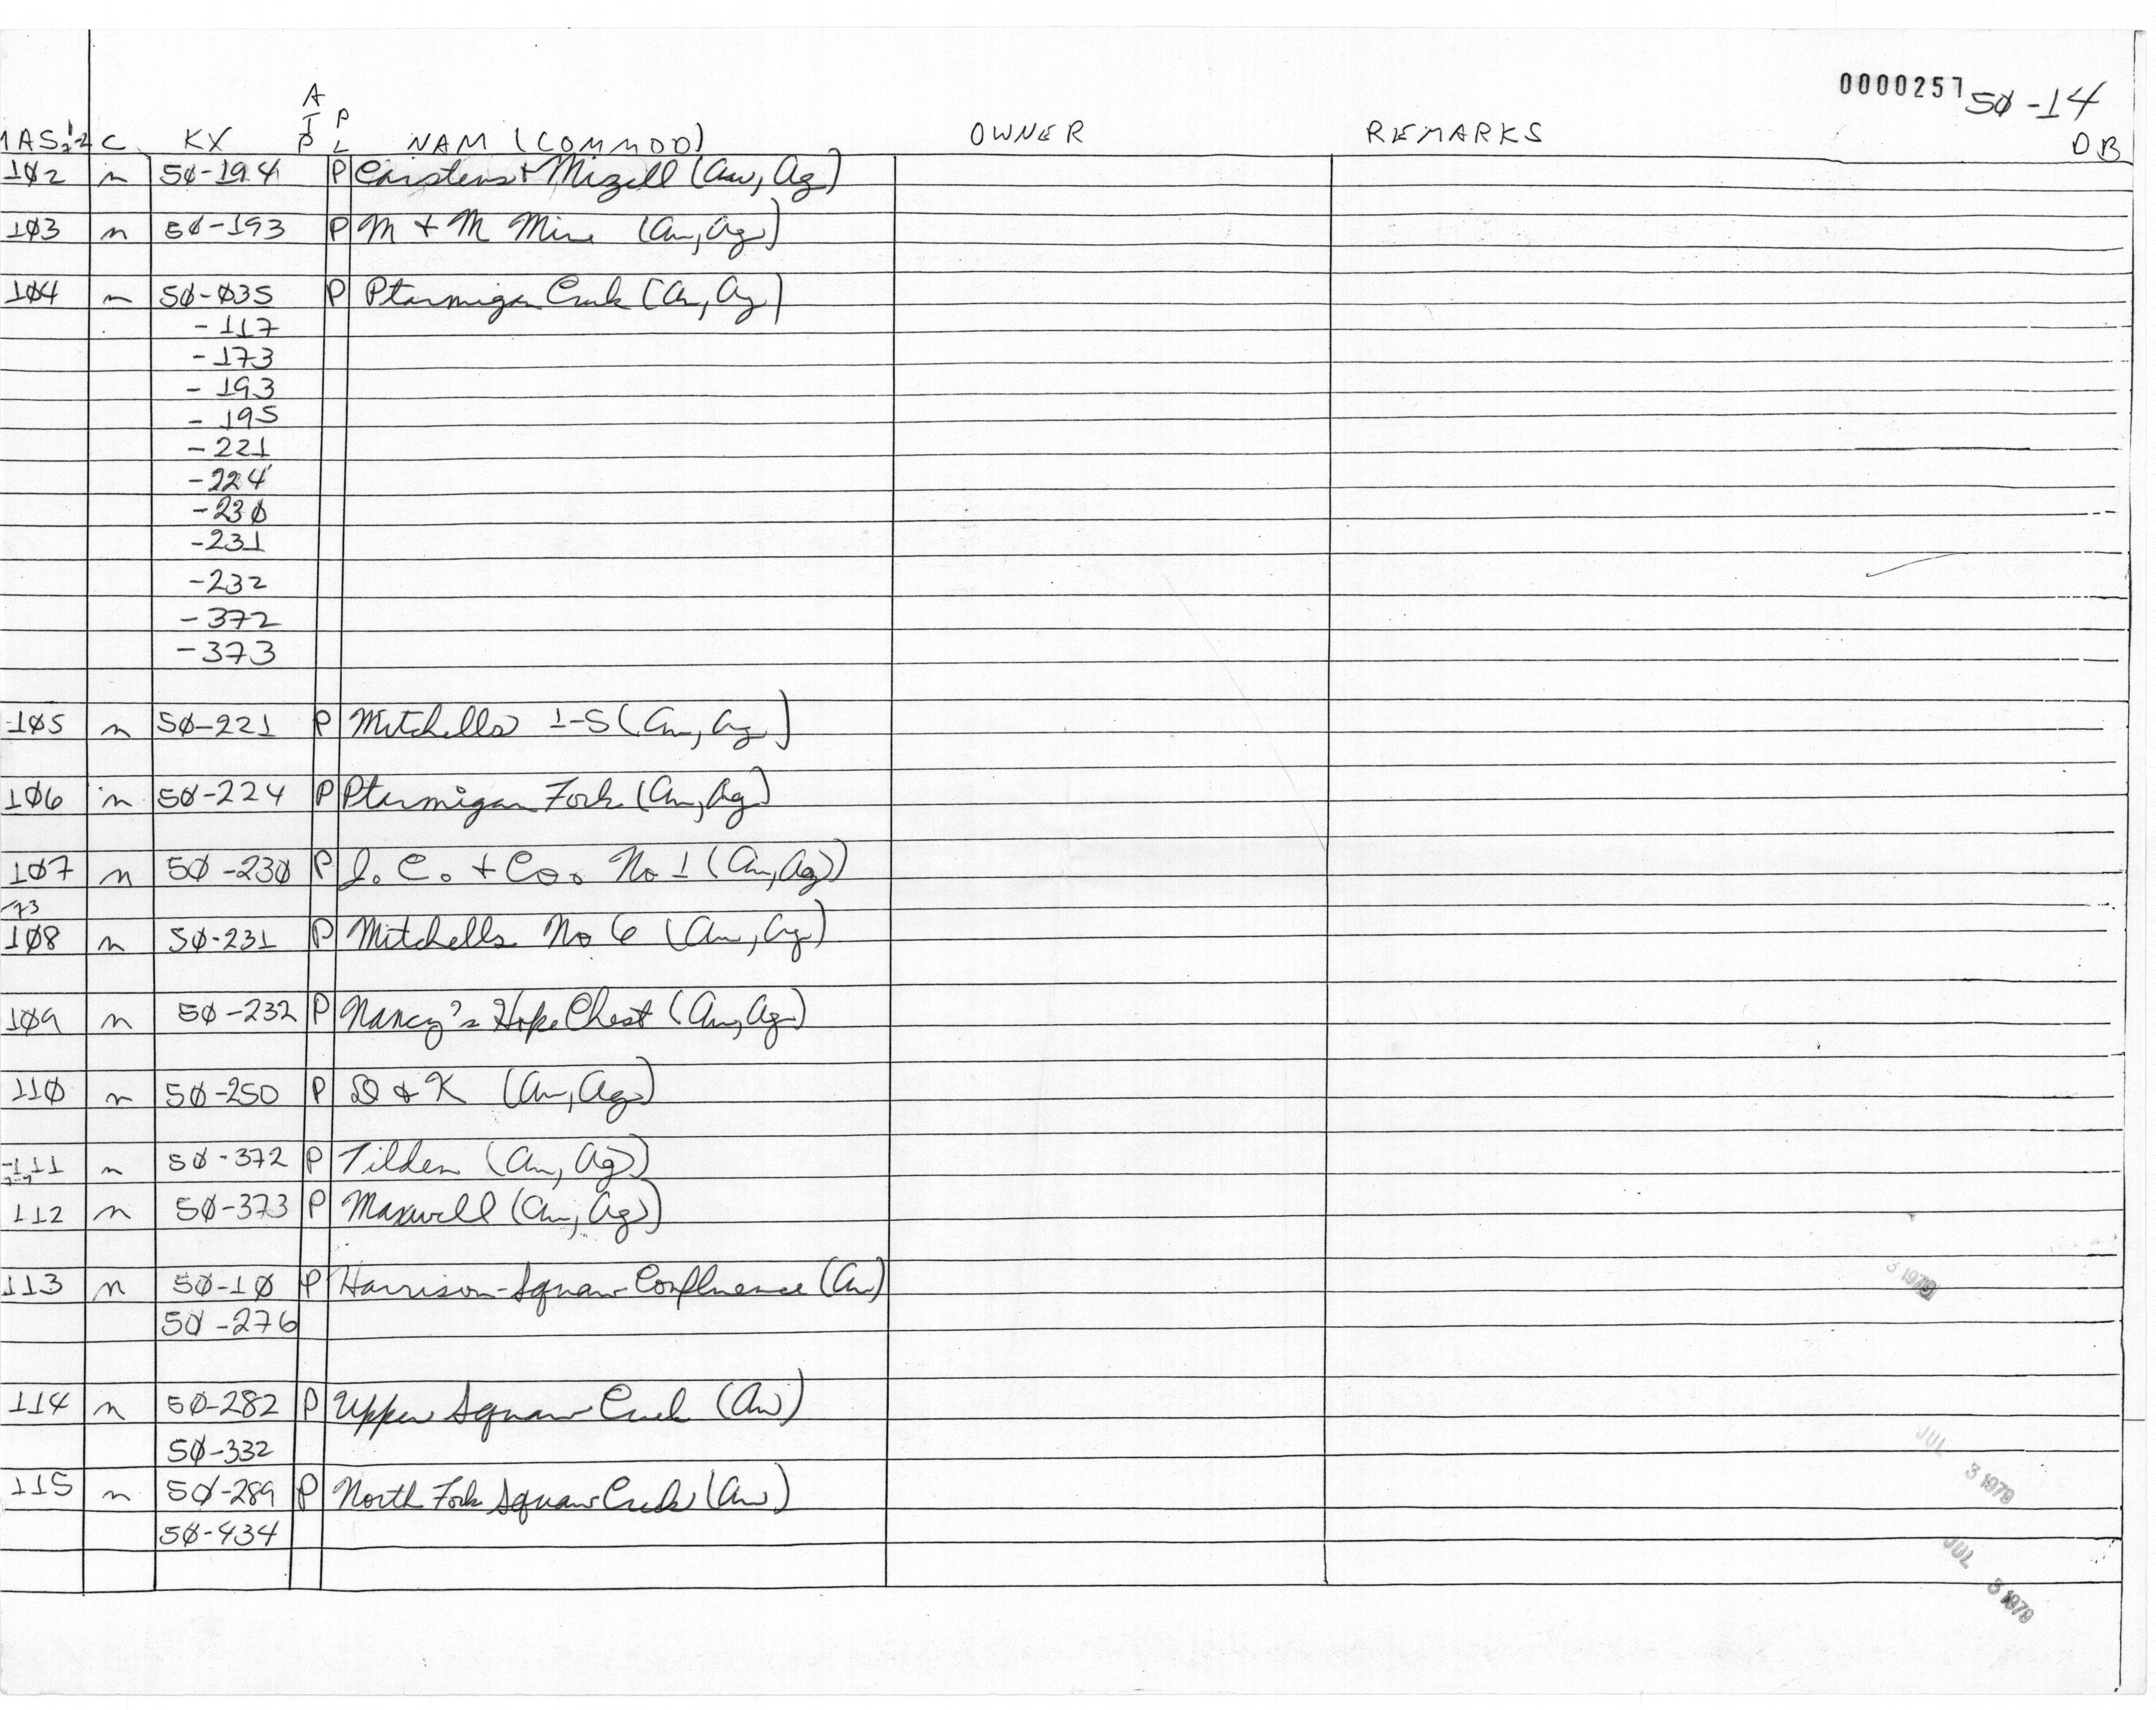 0000257 5Ø-14
A
I P
MAS 1-2 C KX P L NAM (COMMOD) OWNER REMARKS DB
1Ø2 n 5Ø-194 P Carstens + Mizell (Au, Ag)
1Ø3 n 5Ø-193 P M + M Mine (Au, Ag)
1Ø4 n 5Ø-Ø35 P Ptarmigan Creek (Au, Ag)
-117
-173
-193
-195
-221
-224
-23Ø
-231
-232
-372
-373
1Ø5 n 5Ø-221 P Mitchells 1-5 (Au, Ag)
1Ø6 n 5Ø-224 P Ptarmigan Fork (Au, Ag)
1Ø7 n 5Ø-23Ø P J. C. + Co. No 1 (Au, Ag)
73
1Ø8 n 5Ø-231 P Mitchells No 6 (Au, Ag)
1Ø9 n 5Ø-232 P Nancy's Hope Chest (Au, Ag)
11Ø n 5Ø-250 P D & K (Au, Ag)
111 n 5Ø-372 P Tilden (Au, Ag)
112 n 5Ø-373 P Maxwell (Au, Ag)
113 n 5Ø-1Ø P Harrison-Squaw Confluence (Au)
5Ø-276
3 1979
114 n 5Ø-282 P Upper Squaw Creek (Au)
5Ø-332
JUL 3 1979
115 n 5Ø-289 P North Fork Squaw Creek (Au)
5Ø-434
JUL 3 1979